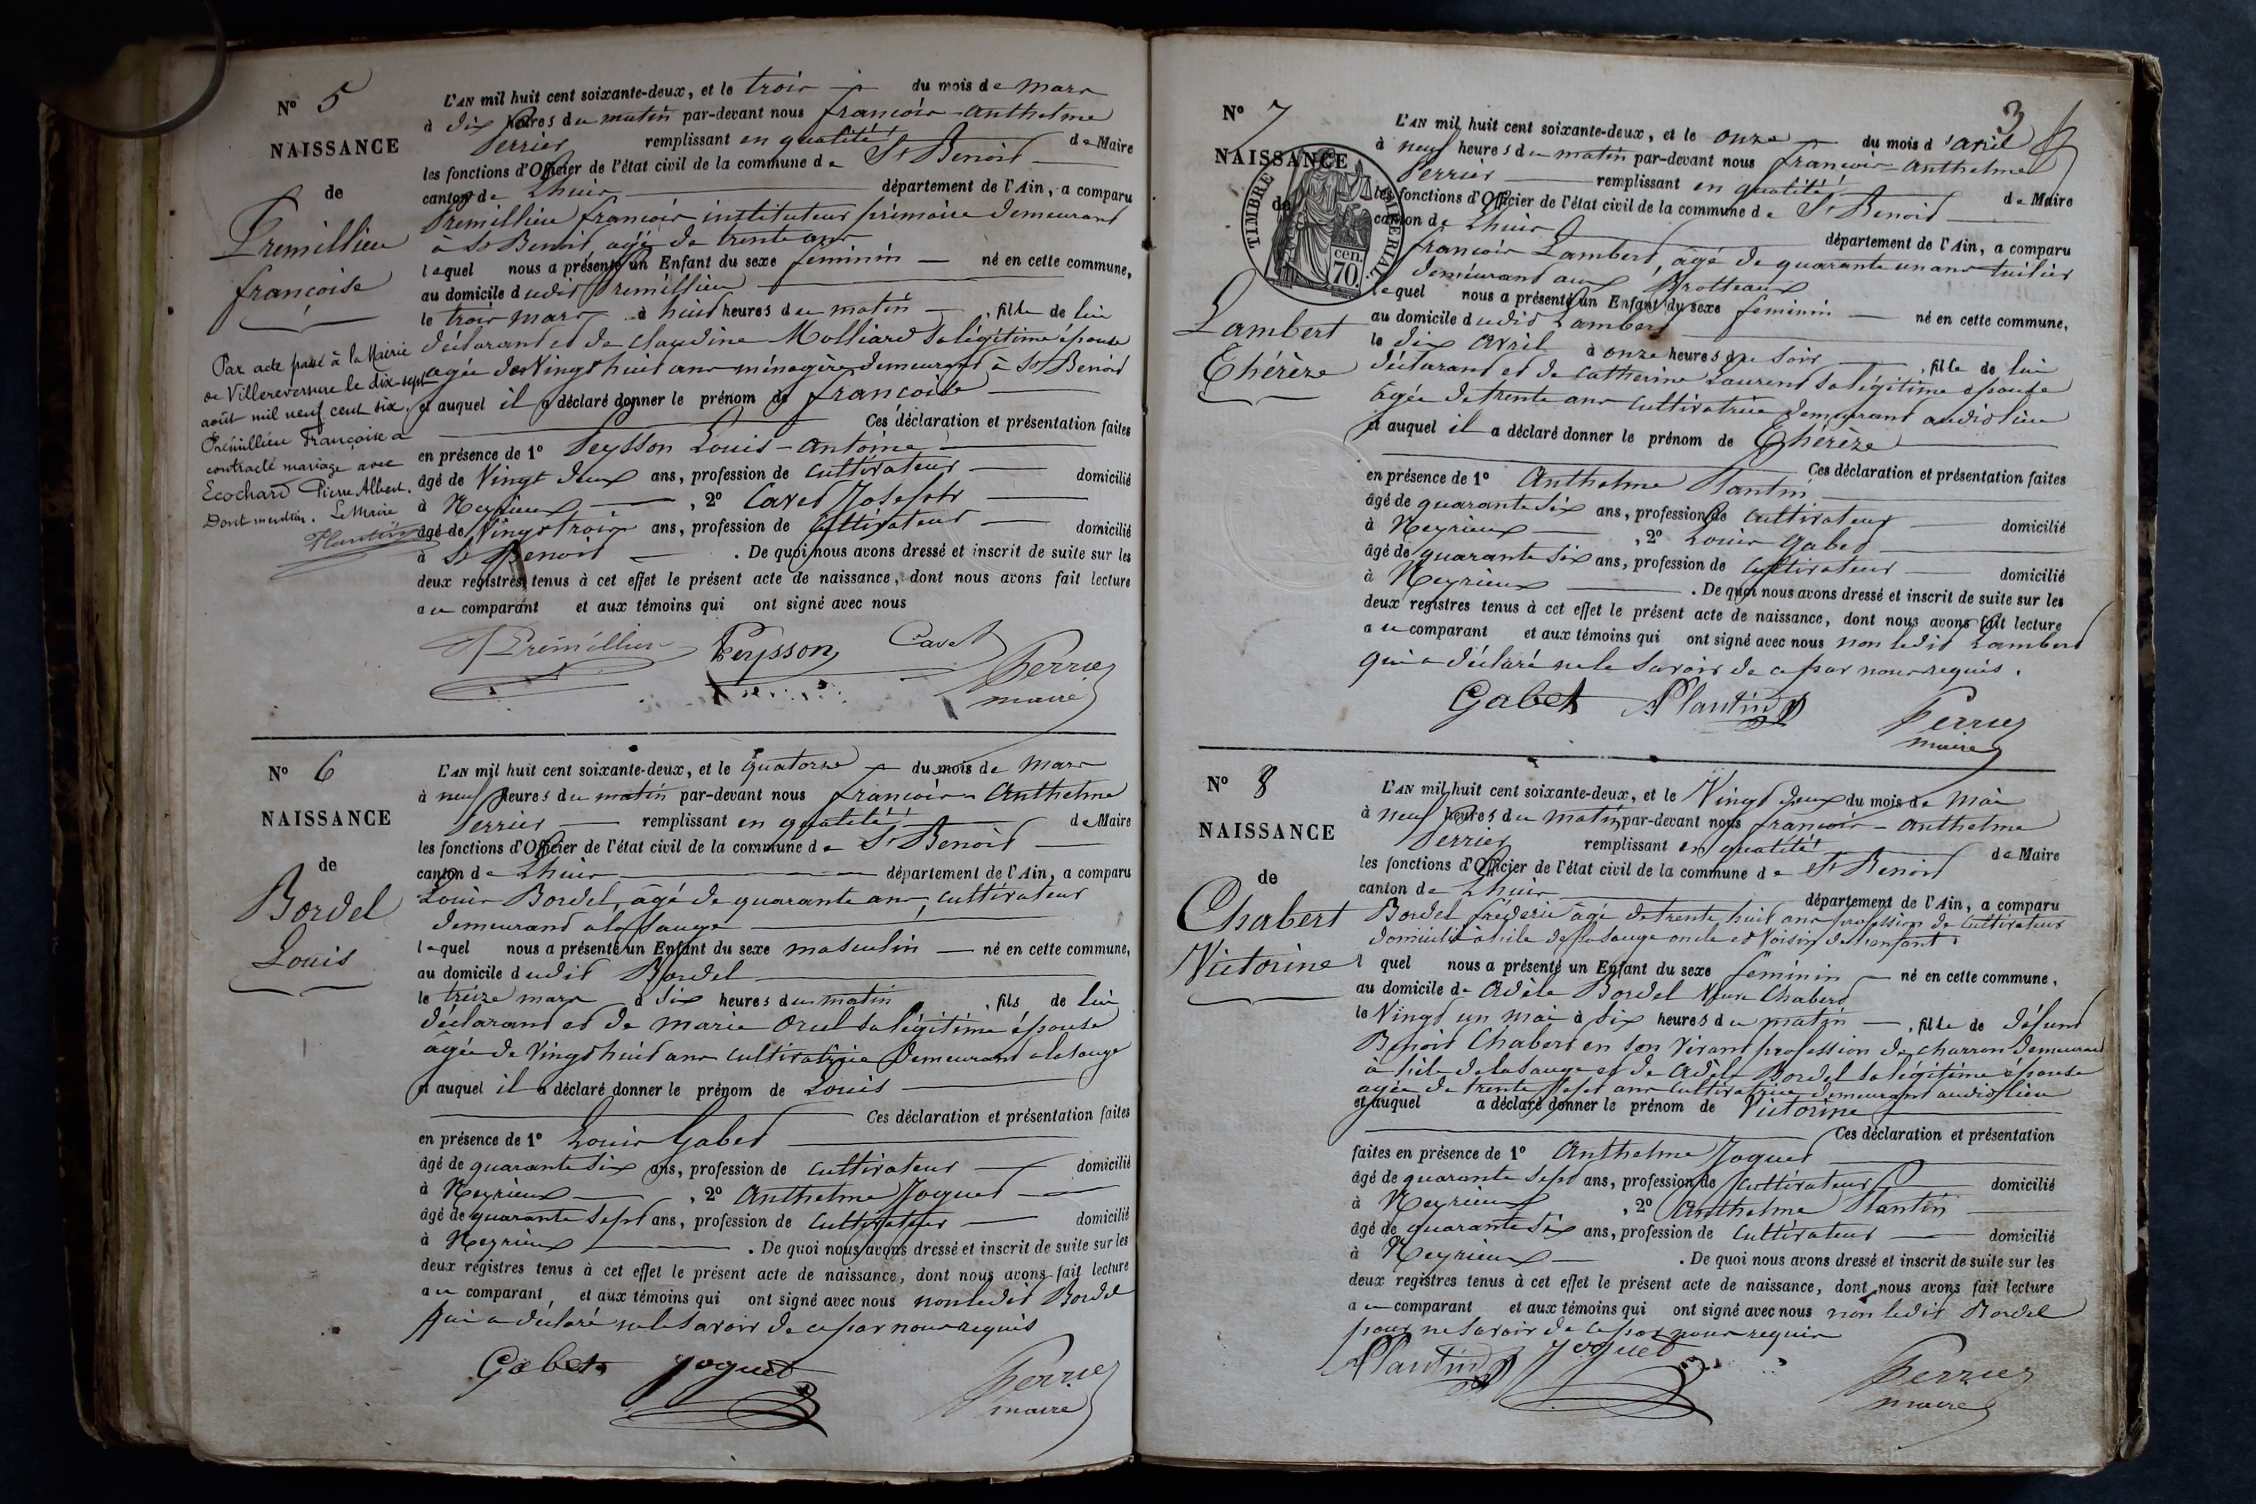 N° 5
NAISSANCE
de
Premillieu
françoise
Par acte passé à la Mairie
de Villereversure le dix-sept
août mil neuf cent six,
Prémillieu Françoise a
contracté mariage avec
Ecochard Pierre Albert.
Dont mention. Le Maire
Plantin
L'AN mil huit cent soixante-deux, et le trois du mois de mars
à dix heures du matin par-devant nous françois-anthelme
Perrier remplissant en qualité de Maire
les fonctions d'Officier de l'état civil de la commune de St Benoit
canton de Lhuis département de l'Ain, a comparu
Premillieu françois instituteur primaire demeurant
à St Benoit, agé de trente ans
lequel nous a présenté un Enfant du sexe feminin né en cette commune,
au domicile dudit Premillieu
le trois mars à huit heures du matin , fille de lui
déclarant et de claudine Molliard sa légitime épouse
agée de Vingt huit ans ménagère demeurant à St Benoit
et auquel il a déclaré donner le prénom de françoise
Ces déclaration et présentation faites
en présence de 1° Peysson Louis-antoine
âgé de Vingt deux ans, profession de cultivateur domicilié
à Neyrieux , 2° Cavet Joseph
âgé de Vingt trois ans, profession de cultivateur domicilié
à St Benoit . De quoi nous avons dressé et inscrit de suite sur les
deux registres tenus à cet effet le présent acte de naissance, dont nous avons fait lecture
au comparant et aux témoins qui ont signé avec nous
Prémillieu Peysson Cavet Perrier
maire
N° 6
NAISSANCE
de
Bordel
Louis
L'AN mil huit cent soixante-deux, et le quatorze du mois de mars
à neuf heures du matin par-devant nous françois-Anthelme
Perrier remplissant en qualité de Maire
les fonctions d'Officier de l'état civil de la commune de St Benoit
canton de Lhuis département de l'Ain, a comparu
Louis Bordel, âgé de quarante ans, cultivateur
demeurant à la Sauge
lequel nous a présenté un Enfant du sexe masculin né en cette commune,
au domicile dudit Bordel
le treize mars à six heures du matin , fils de lui
déclarant et de marie Orcel sa légitime épouse
agée de Vingt huit ans cultivatrice demeurant à la sauge
et auquel il a déclaré donner le prénom de Louis
Ces déclaration et présentation faites
en présence de 1° Louis Gabet
âgé de quarante six ans, profession de cultivateur domicilié
à Neyrieux , 2° Anthelme Joguet
âgé de quarante sept ans, profession de cultivateur domicilié
à Neyrieux . De quoi nous avons dressé et inscrit de suite sur les
deux registres tenus à cet effet le présent acte de naissance, dont nous avons fait lecture
au comparant, et aux témoins qui ont signé avec nous non ledit Bordel
qui a déclaré ne le savoir de ce par nous requis
Gabet Joguet Perrier
maire
3
N° 7
NAISSANCE
de
TIMBRE IMPERIAL
cen.
70.
Lambert
Thérèze
L'AN mil huit cent soixante-deux, et le onze du mois d'avril
à neuf heures du matin par-devant nous françois-anthelme
Perrier remplissant en qualité de Maire
les fonctions d'Officier de l'état civil de la commune de St Benoit
canton de Lhuis département de l'Ain, a comparu
françois Lambert, âgé de quarante un ans tuilier
demeurant aux Brotteaux
lequel nous a présenté un Enfant du sexe feminin né en cette commune,
au domicile dudit Lambert
le dix avril à onze heures du soir , fille de lui
déclarant et de catherine Laurent sa légitime épouse
agée de trente ans cultivatrice demeurant audit lieu
et auquel il a déclaré donner le prénom de Thérèze
Ces déclaration et présentation faites
en présence de 1° Anthelme Plantin
âgé de quarante six ans, profession de cultivateur domicilié
à Neyrieux , 2° Louis Gabet
âgé de quarante six ans, profession de cultivateur domicilié
à Neyrieux . De quoi nous avons dressé et inscrit de suite sur les
deux registres tenus à cet effet le présent acte de naissance, dont nous avons fait lecture
au comparant et aux témoins qui ont signé avec nous non ledit Lambert
qui a déclaré ne le savoir de ce par nous requis.
Gabet Plantin Perrier
maire
N° 8
NAISSANCE
de
Chabert
Victorine
L'AN mil huit cent soixante-deux, et le Vingt deux du mois de mai
à neuf heures du matin par-devant nous françois-anthelme
Perrier remplissant en qualité de Maire
les fonctions d'Officier de l'état civil de la commune de St Benoit
canton de Lhuis département de l'Ain, a comparu
Bordel fréderic âgé de trente huit ans profession de cultivateur
domicilié à l'ile de la sauge oncle et voisin de l'enfant
l quel nous a présenté un Enfant du sexe féminin né en cette commune,
au domicile de Adèle Bordel Veuve Chabert
le Vingt un mai à six heures du matin , fille de défunt
Benoit Chabert en son vivant profession de charron demeurant
à l'ile de la Sauge et de Adèle Bordel sa légitime épouse
agée de trente sept ans cultivatrice demeurant audit lieu
et auquel a déclaré donner le prénom de Victorine
Ces déclaration et présentation
faites en présence de 1° Anthelme Joguet
âgé de quarante sept ans, profession de cultivateur domicilié
à Neyrieux , 2° Anthelme Plantin
âgé de quarante six ans, profession de cultivateur domicilié
à Neyrieux . De quoi nous avons dressé et inscrit de suite sur les
deux registres tenus à cet effet le présent acte de naissance, dont nous avons fait lecture
au comparant et aux témoins qui ont signé avec nous non ledit Bordel
pour ne savoir de ce par nous requis
Plantin Joguet Perrier
maire